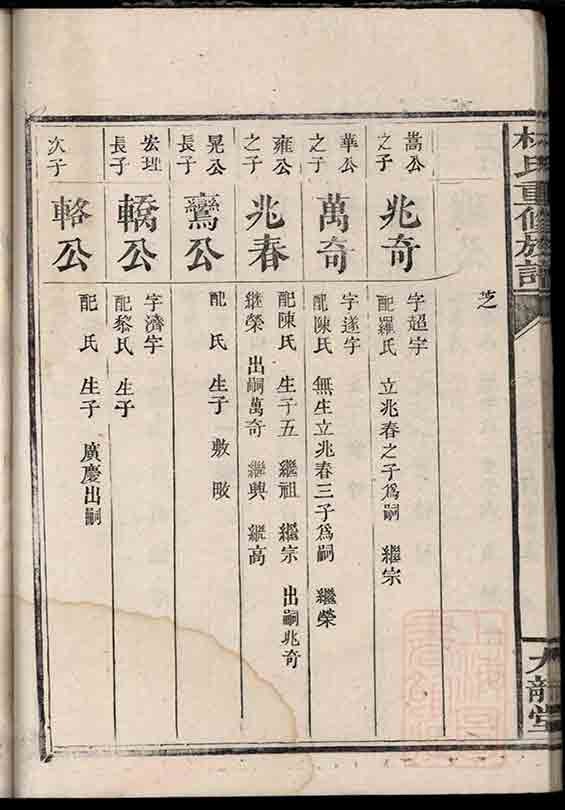 氏重修族譜
九龍堂
芝
嵩公
之子
兆奇
字超宇
配羅氏 立兆春之子為嗣 繼宗
華公
之子
萬奇
字遂宇
配陳氏 無生立兆春三子為嗣 繼榮
雍公
之子
兆春
配陳氏 生子五 繼祖 繼宗 出嗣兆奇
繼榮 出嗣萬奇 繼興 繼高
晃公
長子
鸞公
配 氏 生子 敷
宏理
長子
轎公
字濟宇
配黎氏 生子
次子
輅公
配 氏 生子 廣慶出嗣